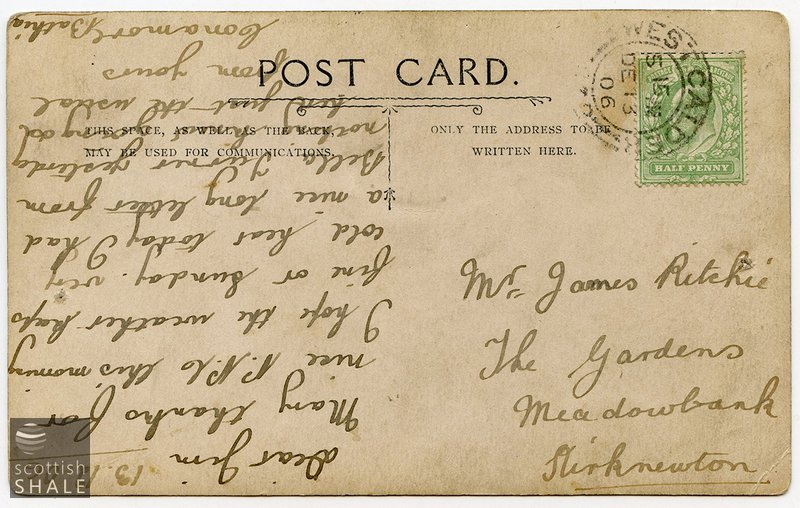 POST CARD.
THIS SPACE, AS WELL AS THE BACK,
MAY BE USED FOR COMMUNICATIONS.
ONLY THE ADDRESS TO BE
WRITTEN HERE.
WEST CALDER
5 15
DE 13
06
HALF PENNY
Mr James Ritchie
The Gardens
Meadowbank
Kirknewton
13.
Dear Jim
Many thanks for
nice P.P.C this morning
I hope the weather keeps
fine or Sunday. very
cold hear today I had
a nice long letter from
Bella Turner yesterday
nothing
just the usual
from yours
Conamore
Bathia
scottish
SHALE